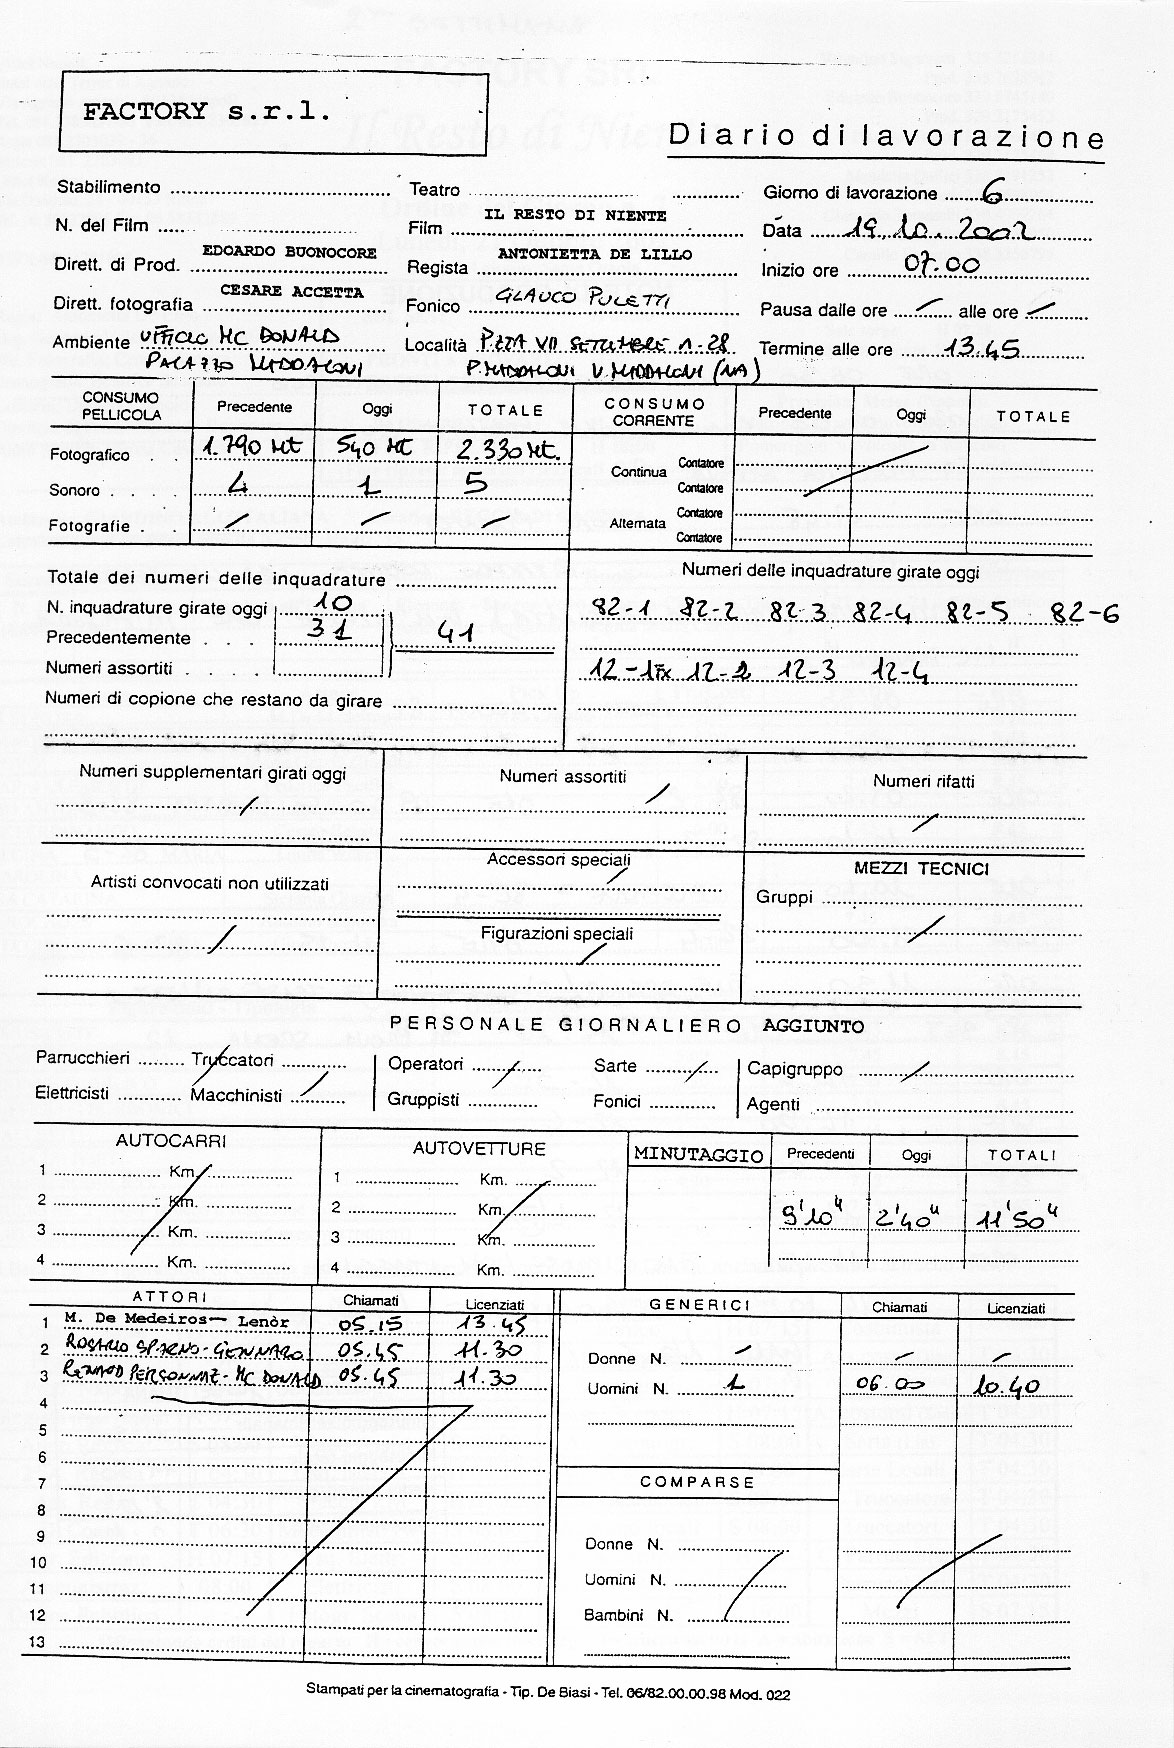 FACTORY s.r.l.
Diario di lavorazione
Stabilimento Teatro Giorno di lavorazione 6
N. del Film Film IL RESTO DI NIENTE Data 19.10.2002
Dirett. di Prod. EDOARDO BUONOCORE Regista ANTONIETTA DE LILLO Inizio ore 07.00
Dirett. fotografia CESARE ACCETTA Fonico GLAUCO PULETTI Pausa dalle ore / alle ore /
Ambiente UFFICIO MC DONALD Località P.ZZA VII SETTEMBRE N. 28 Termine alle ore 13.45
PALAZZO MADDALONI P. MADDALONI V. MADDALONI (NA)
CONSUMO PELLICOLA Precedente Oggi TOTALE CONSUMO CORRENTE Precedente Oggi TOTALE
Fotografico 1.790 Mt 540 Mt 2.330 Mt. Continua Contatore
Sonoro 4 1 5 Contatore
Fotografie / / / Alternata Contatore
Contatore
Totale dei numeri delle inquadrature Numeri delle inquadrature girate oggi
N. inquadrature girate oggi 10 82-1 82-2 82-3 82-4 82-5 82-6
Precedentemente 31 41
Numeri assortiti 12-1 12-2 12-3 12-4
Numeri di copione che restano da girare
Numeri supplementari girati oggi Numeri assortiti Numeri rifatti
/ / /
Artisti convocati non utilizzati Accessori speciali MEZZI TECNICI
/ Gruppi
/ Figurazioni speciali /
/
PERSONALE GIORNALIERO AGGIUNTO
Parrucchieri Truccatori Operatori Sarte Capigruppo
Elettricisti Macchinisti Gruppisti Fonici Agenti
AUTOCARRI AUTOVETTURE MINUTAGGIO Precedenti Oggi TOTALI
1 Km. 1 Km.
2 Km. 2 Km. 9'10" 2'40" 11'50"
3 Km. 3 Km.
4 Km. 4 Km.
ATTORI Chiamati Licenziati GENERICI Chiamati Licenziati
1 M. De Medeiros— Lenòr 05.15 13.45
2 ROSARIO SPARNO - GENNARO 05.45 11.30 Donne N. / / /
3 RENAUD PERSONNAZ - MC DONALD 05.45 11.30 Uomini N. 1 06.00 10.40
4
5
6
7 COMPARSE
8
9 Donne N.
10
11 Uomini N.
12 Bambini N.
13
Stampati per la cinematografia - Tip. De Biasi - Tel. 06/82.00.00.98 Mod. 022